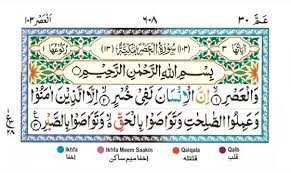 العصر ١٠٣ ٦٠٨ عم ٣٠
اٰیاتها ٣ (١٠٣) سُوْرَةُ الْعَصْرِ مَكِّيَّةٌ (١٣) رُكُوْعُهَا ١
بِسْمِ اللّٰهِ الرَّحْمٰنِ الرَّحِيْمِ
وَالْعَصْرِ ۙ﴿١﴾ اِنَّ الْاِنْسَانَ لَفِيْ خُسْرٍ ۙ﴿٢﴾ اِلَّا الَّذِيْنَ اٰمَنُوْا
وَعَمِلُوا الصّٰلِحٰتِ وَتَوَاصَوْا بِالْحَقِّ ۙ۬ وَتَوَاصَوْا بِالصَّبْرِ ﴿٣﴾
ع
٢٨
Ikhfa Ikhfa Meem Saakin Qalqala Qalb
اخفا اخفا میم ساکن قلقلہ قلب